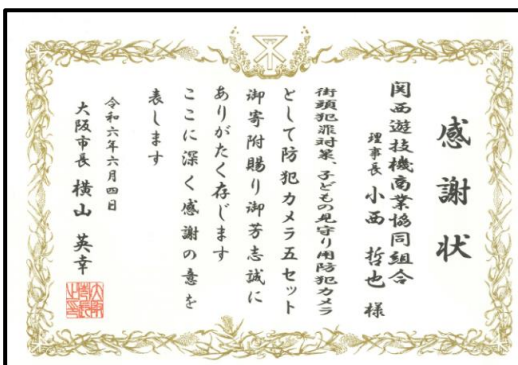 感謝状
関西遊技機商業協同組合
理事長 小西 哲也 様
街頭犯罪対策、子どもの見守り用防犯カメラ
として防犯カメラ五セット
御寄附賜り御芳志誠に
ありがたく存じます
ここに深く感謝の意を
表します
令和六年六月四日
大阪市長 横山 英幸